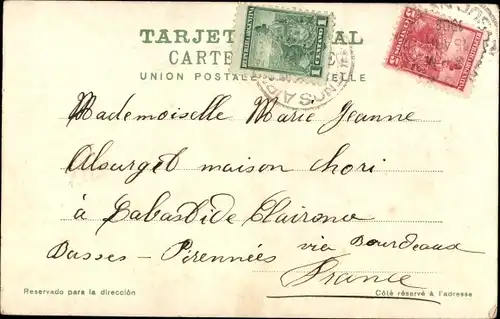 TARJET AL
CARTE
UNION POSTALE ELLE
REPUBLICA ARGENTINA
1 CENTAVO 1
5
Mademoiselle Marie Jeanne
maison Chori
à Labastide Clairence
Basses-Pirennées via Bourdeaux
France
Reservado para la dirección
Côté réservé à l'adresse